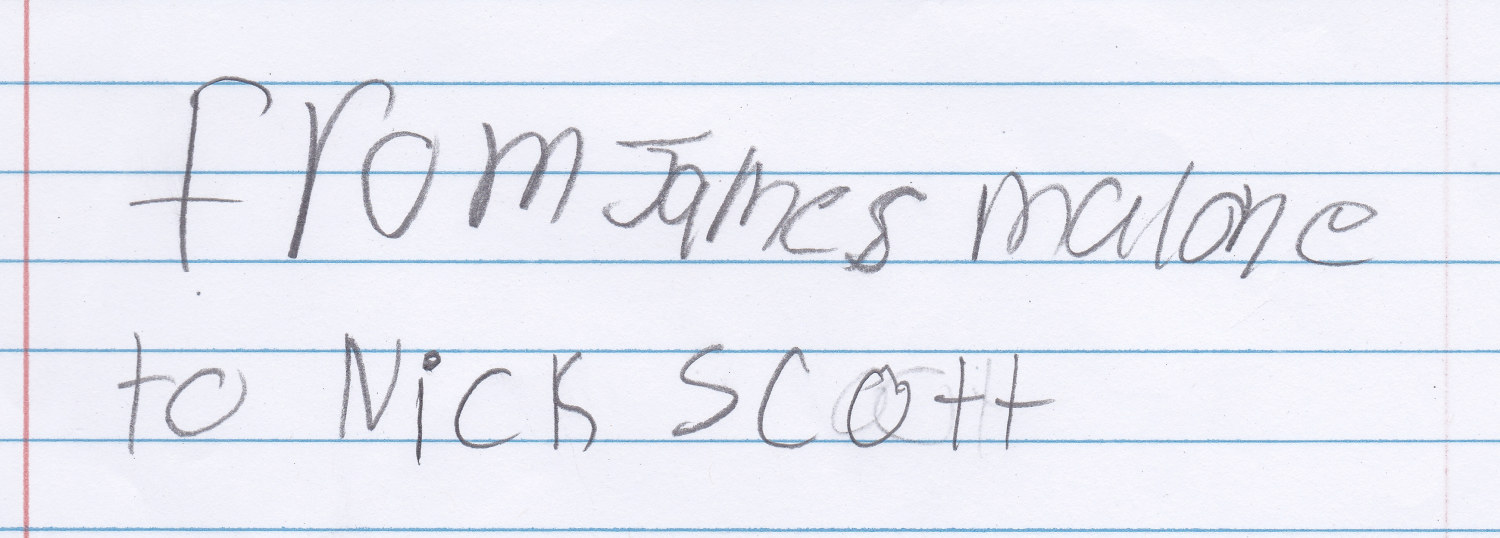 from James malone
to Nick Scott